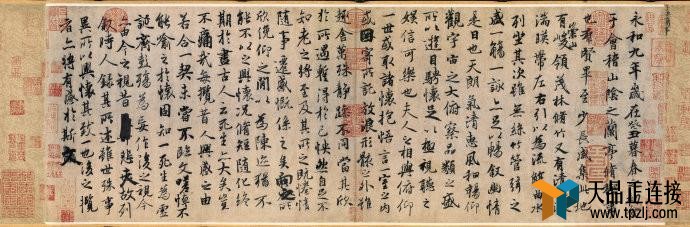 永和九年歲在癸丑暮春之初會
于會稽山陰之蘭亭脩禊事
也群賢畢至少長咸集此地
有崇山峻領茂林脩竹又有清流激
湍暎帶左右引以為流觴曲水
列坐其次雖無絲竹管弦之
盛一觴一詠亦足以暢敘幽情
是日也天朗氣清惠風和暢仰
觀宇宙之大俯察品類之盛
所以遊目騁懷足以極視聽之
娛信可樂也夫人之相與俯仰
一世或取諸懷抱悟言一室之內
或因寄所託放浪形骸之外雖
趣舍萬殊靜躁不同當其欣
於所遇蹔得於己怏然自足不
知老之將至及其所之既惓情
隨事遷感慨係之矣向之所
欣俛仰之閒以為陳跡猶不
能不以之興懷況脩短隨化終
期於盡古人云死生亦大矣豈
不痛哉每攬昔人興感之由
若合一契未嘗不臨文嗟悼不
能喻之於懷固知一死生為虛
誕齊彭殤為妄作後之視今
亦由今之視昔悲夫故列
敘時人錄其所述雖世殊事
異所以興懷其致一也後之攬
者亦將有感於斯文
天品正连接
www.tpzlj.com